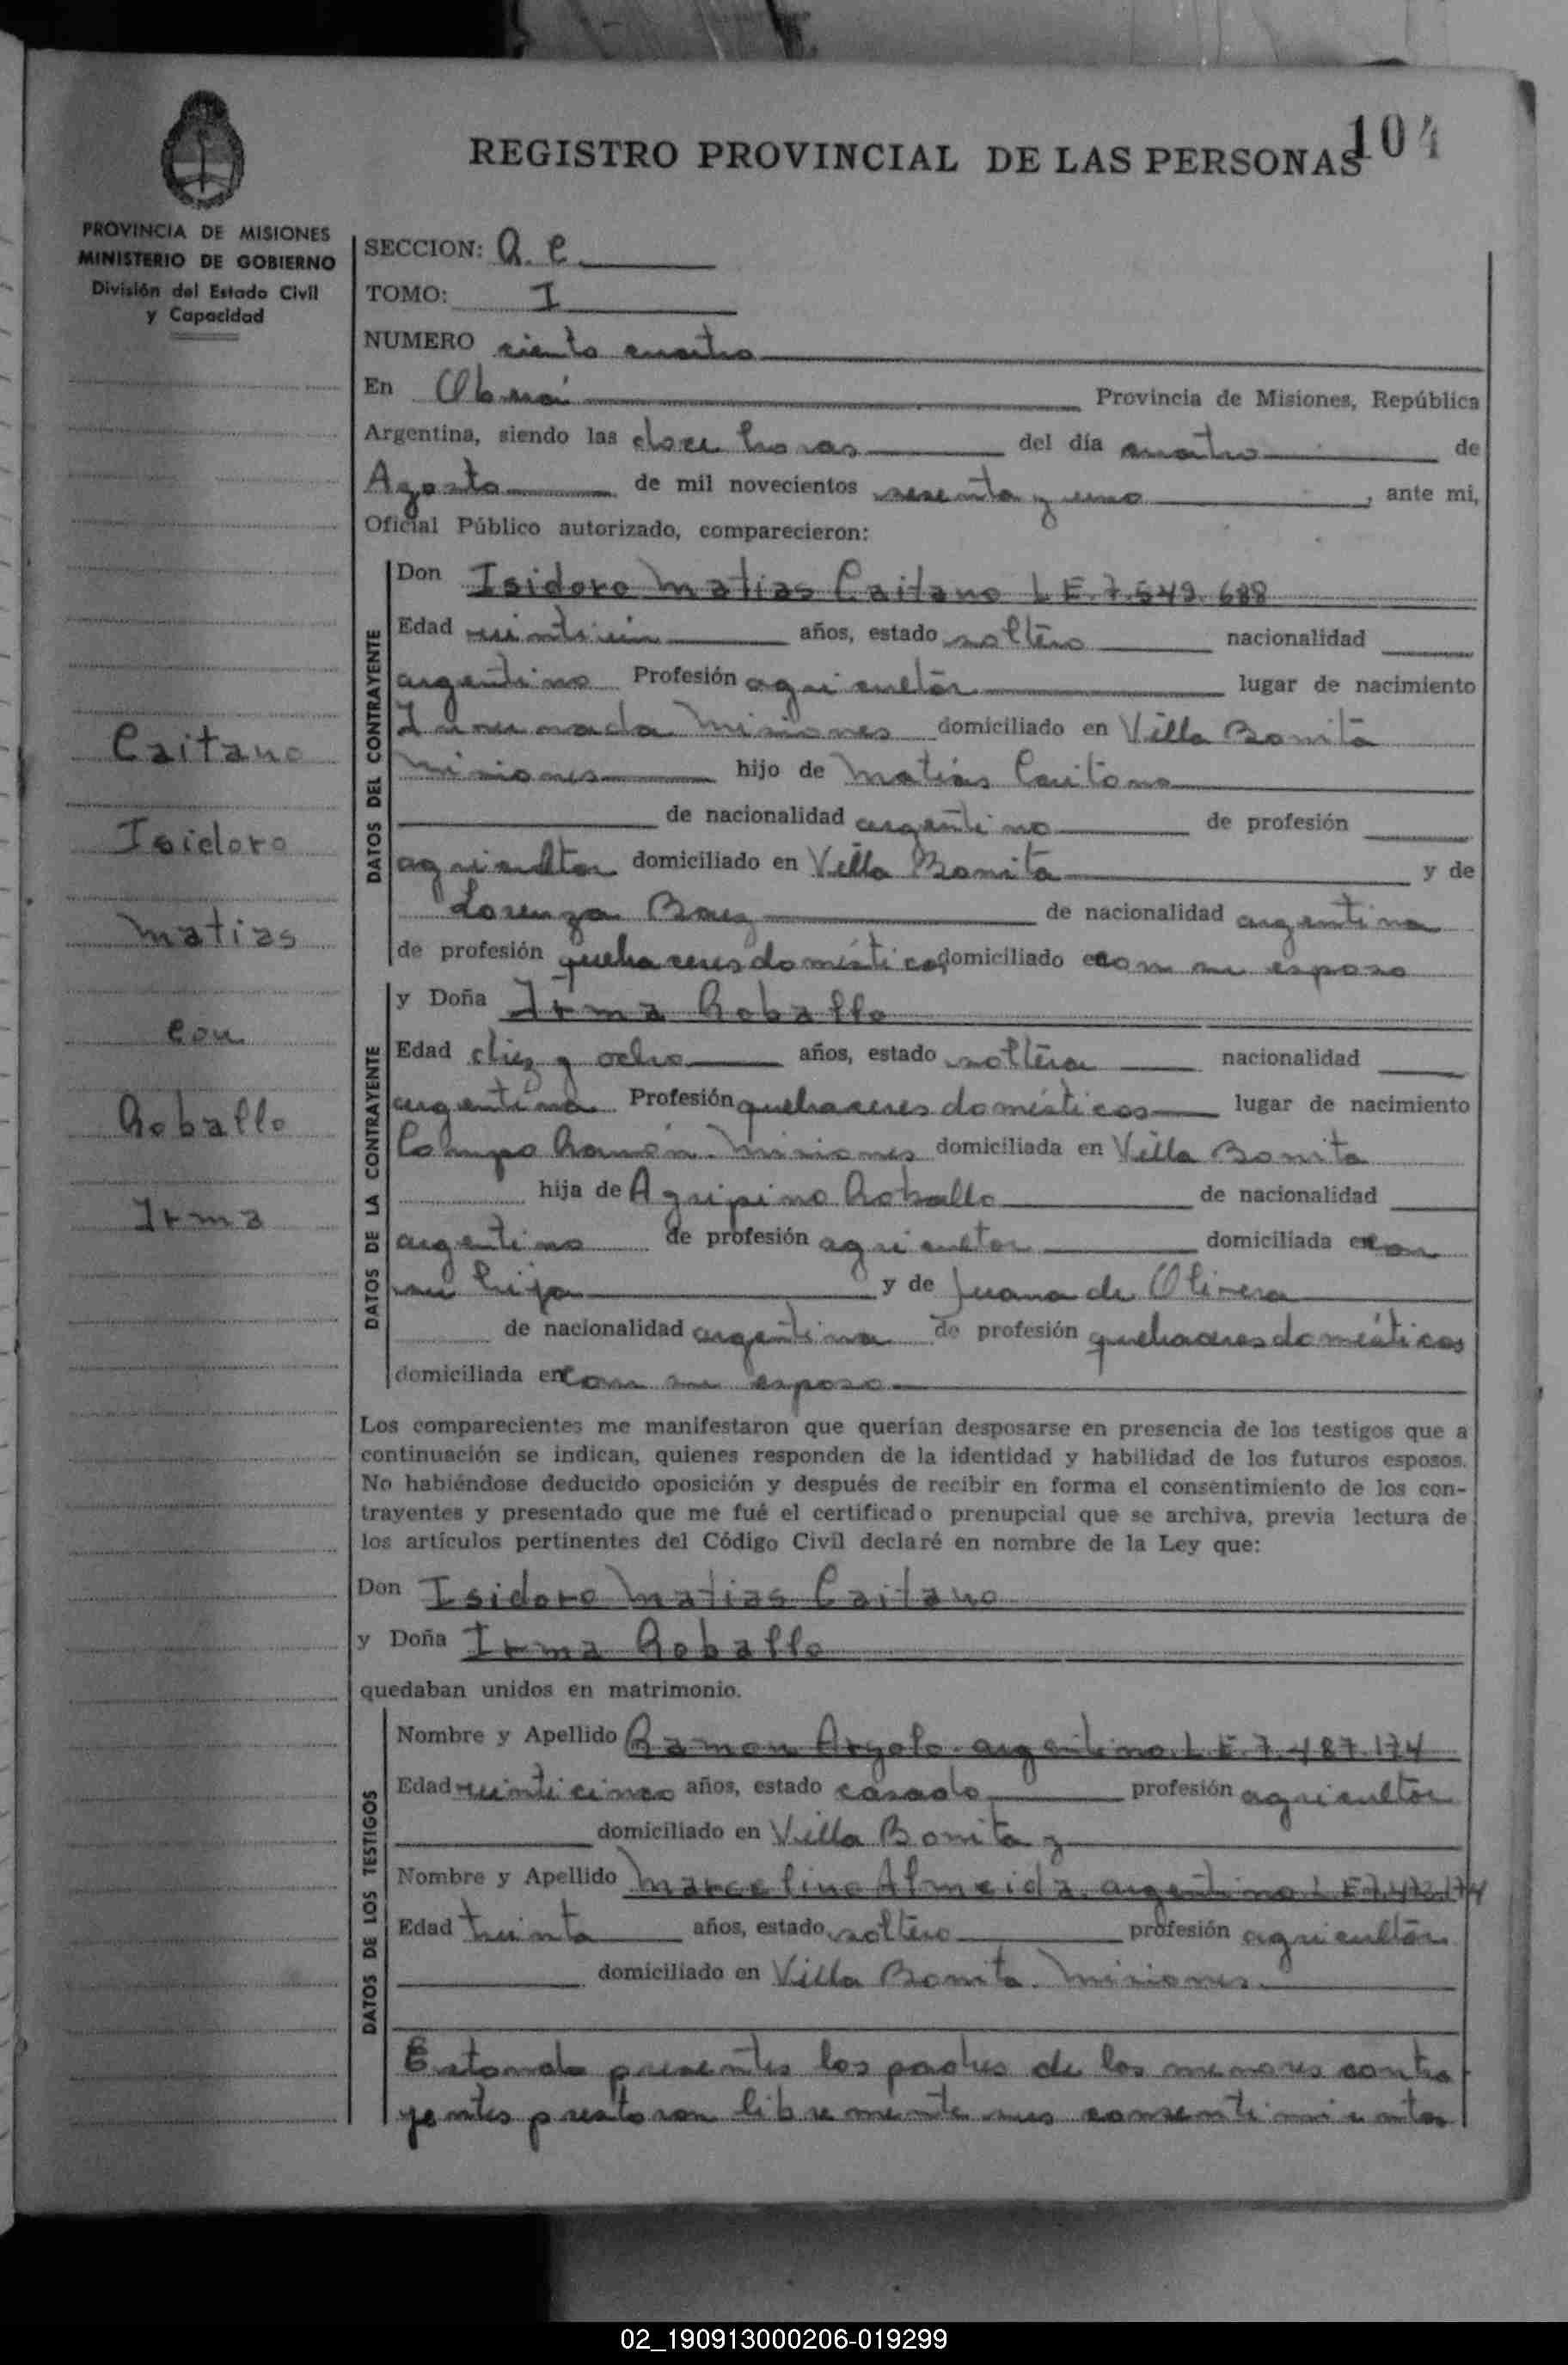 104
REGISTRO PROVINCIAL DE LAS PERSONAS
PROVINCIA DE MISIONES
MINISTERIO DE GOBIERNO
División del Estado Civil
y Capacidad
SECCION: A. C.
TOMO: I
NUMERO ciento cuatro
En Oberá Provincia de Misiones, República
Argentina, siendo las doce horas del día cuatro de
Agosto de mil novecientos sesenta y uno, ante mi,
Oficial Público autorizado, comparecieron:
DATOS DEL CONTRAYENTE
Don Isidoro Matias Caitano L E. 7.549.688
Edad años, estado soltero nacionalidad
argentino Profesión agricultor lugar de nacimiento
Misiones domiciliado en Villa Bonita
Misiones hijo de Matías Caitano
de nacionalidad argentino de profesión
agricultor domiciliado en Villa Bonita y de
Lorenza Baez de nacionalidad argentina
de profesión quehaceres domésticos domiciliado en con su esposo
DATOS DE LA CONTRAYENTE
y Doña Irma Roballo
Edad diez y ocho años, estado soltera nacionalidad
argentina Profesión quehaceres domésticos lugar de nacimiento
Campo Ramón. Misiones domiciliada en Villa Bonita
hija de Agripino Roballo de nacionalidad
argentino de profesión agricultor domiciliada en con
su hija y de Juana de Olivera
de nacionalidad argentina de profesión quehaceres domésticos
domiciliada en con su esposo
Caitano
Isidoro
Matias
con
Roballo
Irma
Los comparecientes me manifestaron que querían desposarse en presencia de los testigos que a
continuación se indican, quienes responden de la identidad y habilidad de los futuros esposos.
No habiéndose deducido oposición y después de recibir en forma el consentimiento de los con-
trayentes y presentado que me fué el certificado prenupcial que se archiva, previa lectura de
los artículos pertinentes del Código Civil declaré en nombre de la Ley que:
Don Isidoro Matias Caitano
y Doña Irma Roballo
quedaban unidos en matrimonio.
DATOS DE LOS TESTIGOS
Nombre y Apellido Ramon Argolo. argentino. L E. 7.487.174
Edad veinticinco años, estado casado profesión agricultor
domiciliado en Villa Bonita y
Nombre y Apellido Marcelino Almeida. argentino L E
Edad treinta años, estado soltero profesión agricultor
domiciliado en Villa Bonita. Misiones.
Estando presentes los padres de los menores contra
yentes prestaron libremente sus consentimientos
02_190913000206-019299